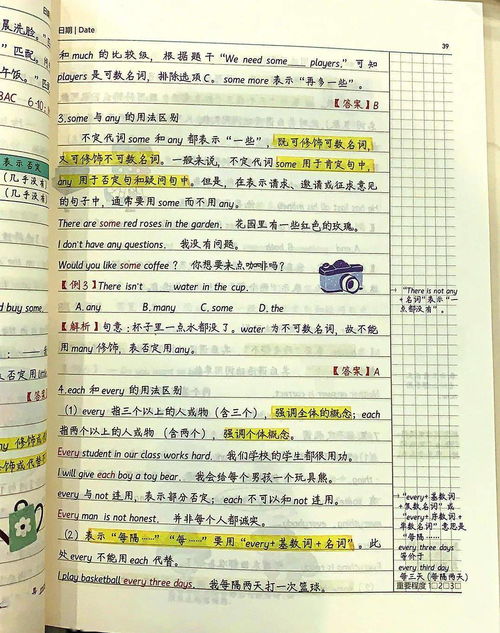 展洗脸。"
"匹配。
午饭。"
BAC 6-10:
表示否定
(几乎没有)
(几乎没有)
buy some,
【答案】
日期 | Date
39
和 much 的比较级，根据题干"We need some ___ players,"可知
players 是可数名词，排除选项C。some more 表示"再多一些"。
【答案】B
3.some 与 any 的用法区别
不定代词 some 和 any 都表示"一些"，既可修饰可数名词，
又可修饰不可数名词。一般来说，不定代词 some 用于肯定句中，
any 用于否定句和疑问句中。但是，在表示请求、邀请或征求意见
的句子中，通常要用 some 而不用 any。
There are some red roses in the garden. 花园里有一些红色的玫瑰。
I don't have any questions. 我没有问题。
Would you like some coffee? 你想要来点咖啡吗？
【例3】There isn't ___ water in the cup.
A. any B. many C. some D. the
【解析】句意：杯子里一点水都没了。water 为不可数名词，故不能
用 many 修饰，表否定用 any。
【答案】A
4.each 和 every 的用法区别
(1) every 指三个以上的人或物（含三个），强调全体的概念；each
指两个以上的人或物（含两个），强调个体概念。
Every student in our class works hard. 我们学校的学生都很用功。
I will give each boy a toy bear. 我会给每个男孩一个玩具熊。
every 与 not 连用，表示部分否定；each 不可以和 not 连用。
Every man is not honest. 并非每个人都诚实。
(2) 表示"每隔……""每……"要用"every+基数词+名词"。此
处 every 不能用 each 代替。
I play basketball every three days. 我每隔两天打一次篮球。
→"There is not any
+名词"表示"一
点都没有"。
→"every+基数词
+复数名词"或
"every+序数词+
单数名词"意思是
"每隔……"
every three days
等价于
every third day
每三天（每隔两天）
重要程度 1□2□3□